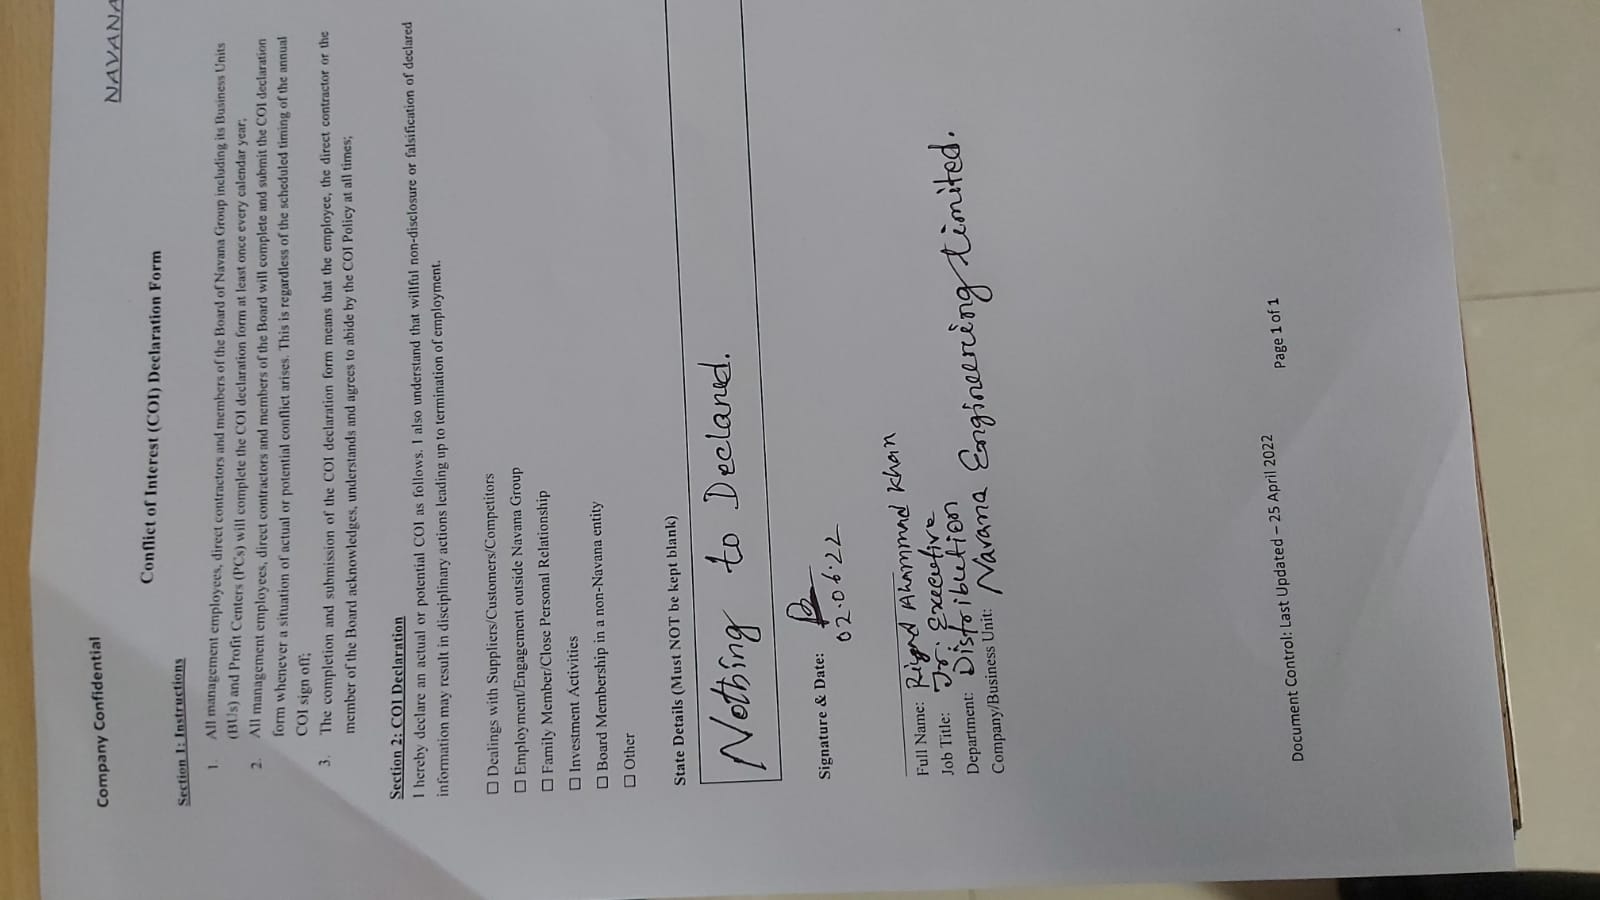 Company Confidential
NAVANA
Conflict of Interest (COI) Declaration Form
Section 1: Instructions
1. All management employees, direct contractors and members of the Board of Navana Group including its Business Units
(BUs) and Profit Centers (PCs) will complete the COI declaration form at least once every calendar year;
2. All management employees, direct contractors and members of the Board will complete and submit the COI declaration
form whenever a situation of actual or potential conflict arises. This is regardless of the scheduled timing of the annual
COI sign off;
3. The completion and submission of the COI declaration form means that the employee, the direct contractor or the
member of the Board acknowledges, understands and agrees to abide by the COI Policy at all times;
Section 2: COI Declaration
I hereby declare an actual or potential COI as follows. I also understand that willful non-disclosure or falsification of declared
information may result in disciplinary actions leading up to termination of employment.
☐ Dealings with Suppliers/Customers/Competitors
☐ Employment/Engagement outside Navana Group
☐ Family Member/Close Personal Relationship
☐ Investment Activities
☐ Board Membership in a non-Navana entity
☐ Other
State Details (Must NOT be kept blank)
Nothing to Declared.
Signature & Date:
02.06.22
Full Name: Ahammad Khan
Job Title: Jr. Executive
Department: Distribution
Company/Business Unit: Navana Engineering Limited.
Document Control: Last Updated – 25 April 2022 Page 1 of 1